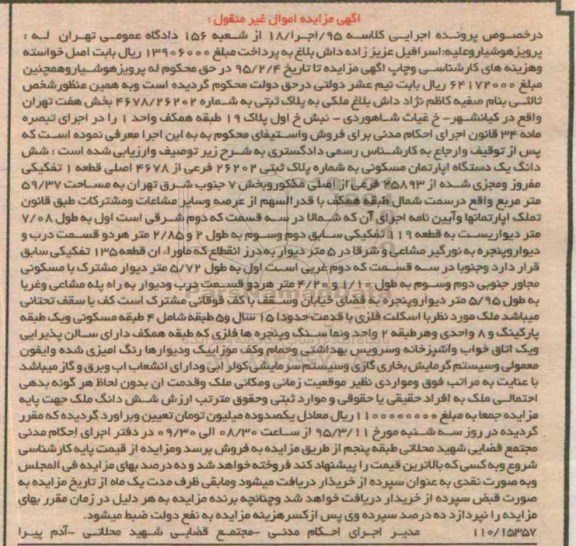 آگهی مزایده اموال غیر منقول :
درخصوص پرونده اجرایی کلاسه ۹۵/اجرا/۱۸ از شعبه ۱۵۶ دادگاه عمومی تهران له :
پرویزهوشیاروعلیه:اسرافیل عزیز زاده داش بلاغ به پرداخت مبلغ ۱۳۹۰۶۰۰۰ ریال بابت اصل خواسته
وهزینه های کارشناسی وچاپ آگهی مزایده تا تاریخ ۹۵/۲/۴ در حق محکوم له پرویزهوشیاروهمچنین
مبلغ ۶۴۱۷۲۰۰۰ ریال بابت نیم عشر دولتی درحق دولت محکوم گردیده است وبه همین منظورشخص
ثالثی بنام صفیه کاظم نژاد داش بلاغ ملکی به پلاک ثبتی به شماره ۴۶۷۸/۲۶۲۰۲ بخش هفت تهران
واقع در کیانشهر- خ غیاث شاهوردی - نبش خ اول پلاک ۱۹ طبقه همکف واحد ۱ را در اجرای تبصره
ماده ۳۴ قانون اجرای احکام مدنی برای فروش واستیفای محکوم به به این اجرا معرفی نموده است که
پس از توقیف وارجاع به کارشناس رسمی دادگستری به شرح زیر توصیف وارزیابی شده است : شش
دانگ یک دستگاه اپارتمان مسکونی به شماره پلاک ثبتی ۲۶۲۰۲ فرعی از ۴۶۷۸ اصلی قطعه ۱ تفکیکی
مفروز ومجزی شده از ۲۵۸۹۳ فرعی از اصلی مذکوروبخش ۷ جنوب شرق تهران به مساحت ۵۹/۳۷
متر مربع واقع درسمت شمال طبقه همکف با قدرالسهم از عرصه وسایر مشاعات ومشترکات طبق قانون
تملک اپارتمانها وآیین نامه اجرای آن که شمالا در سه قسمت که دوم شرقی است اول به طول ۷/۰۸
متر دیواریست به قطعه ۱۱۹ تفکیکی سابق دوم وسوم به طول ۲ و ۲/۸۵ متر هردو قسمت درب و
دیواروپنجره به نورگیر مشاعی و شرقا در ۵ متر دیوار به درز انقطاع که ماوراء ان قطعه ۱۳۵ تفکیکی سابق
قرار دارد وجنوبا در سه قسمت که دوم غربی است اول به طول ۵/۷۲ متر دیوار مشترک با مسکونی
مجاور جنوبی دوم وسوم به طول ۱/۱۰ و ۴/۲۰ متر هردو قسمت درب ودیوار به راه پله مشاعی وغربا
به طول ۵/۹۵ متر دیواروپنجره به فضای خیابان وسقف با کف فوقانی مشترک است کف با سقف تحتانی
میباشد ملک مورد نظربا اسکلت فلزی با قدمت حدودا ۱۵ سال و۵ طبقه شامل ۴ طبقه مسکونی ویک طبقه
پارکینگ و ۸ واحدی وهرطبقه ۲ واحد ونما سنگ وپنجره ها فلزی که طبقه همکف دارای سالن پذیرایی
ویک اتاق خواب وآشپزخانه وسرویس بهداشتی وحمام وکف موزاییک ودیوارها رنگ امیزی شده وایفون
معمولی وسیستم گرمایش بخاری گازی وسیستم سرمایشی کولر ابی ودارای انشعاب اب وبرق و گاز میباشد
با عنایت به مراتب فوق ومواردی نظیر موقعیت زمانی ومکانی ملک وقدمت ان بدون لحاظ هر گونه بدهی
احتمالی ملک به افراد حقیقی یا حقوقی و موارد ثبتی وحقوق مترتب ارزش شش دانگ ملک جهت پایه
مزایده جمعا به مبلغ ۱۱۰۰۰۰۰۰۰۰ ریال معادل یکصدوده میلیون تومان تعیین وبراورد گردیده که مقرر
گردیده در روز سه شنبه مورخ ۹۵/۳/۱۱ از ساعت ۰۸/۳۰ الی ۰۹/۳۰ در دفتر اجرای احکام مدنی
مجتمع قضایی شهید محلاتی طبقه پنجم از طریق مزایده به فروش برسد ومزایده از قیمت پایه کارشناسی
شروع وبه کسی که بالاترین قیمت را پیشنهاد کند فروخته خواهد شد و ده درصد بهای مزایده فی المجلس
وبه صورت نقدی به عنوان سپرده از خریدار دریافت میشود ومابقی ظرف مدت یک ماه از تاریخ مزایده به
صورت قبض سپرده از خریدار دریافت خواهد شد وچنانچه برنده مزایده به هر دلیل در زمان مقرر بهای
مزایده را نپردازد ده درصد سپرده وی پس ازکسرهزینه مزایده به نفع دولت ضبط میشود.
۱۱۰/۱۵۳۵۷ مدیر اجرای احکام مدنی -مجتمع قضایی شهید محلاتی -آدم پیرا